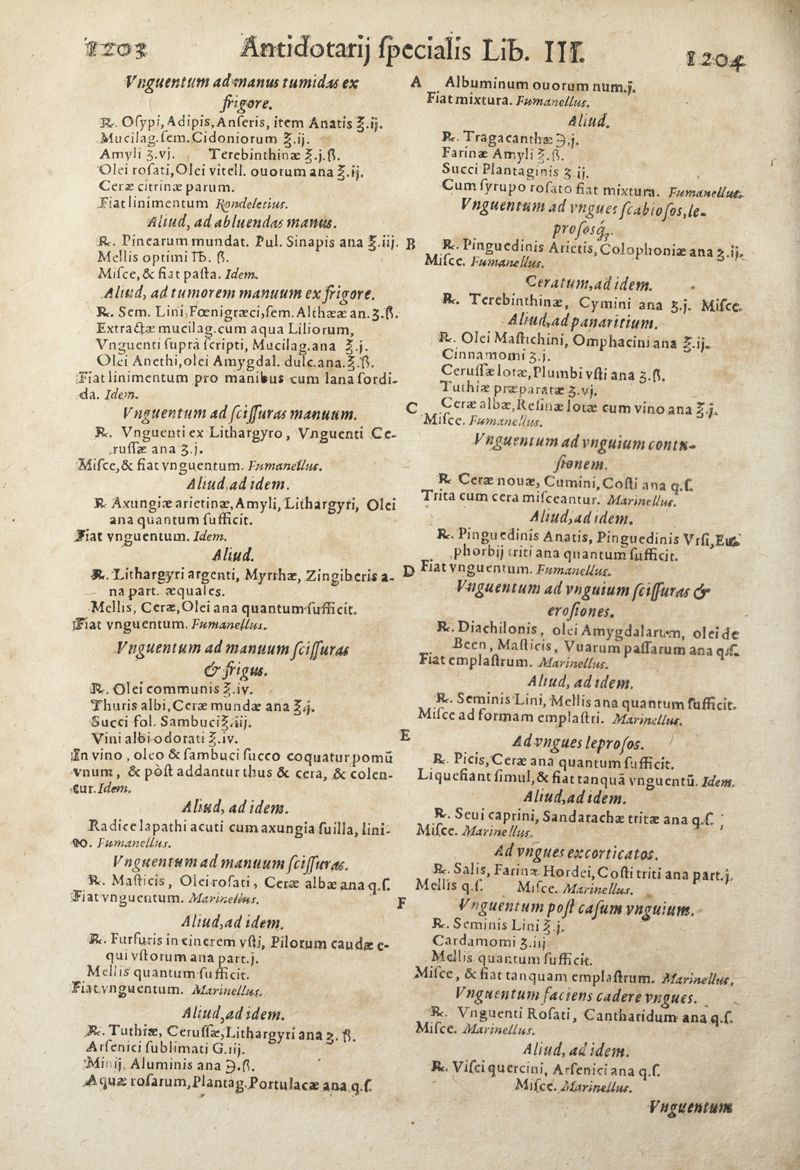 1203 Antidotarij ſpecialis Lib. III. 1204
Vnguentum ad manus tumidas ex
frigore.
℞. Oſypi, Adipis, Anſeris, item Anatis ℥.ij.
Mucilag. ſem. Cidoniorum ℥.ij.
Amyli ʒ.vj. Terebinthinæ ℥.j.ß.
Olei roſati, Olei vitell. ouorum ana ℥.ij.
Ceræ citrinæ parum.
Fiat linimentum Rondeletius.
Aliud, ad abluendas manus.
℞. Pinearum mundat. Pul. Sinapis ana ℥.iij.
Mellis optimi ℔. ß.
Miſce, & fiat paſta. Idem.
Aliud, ad tumorem manuum ex frigore.
℞. Sem. Lini, Fœnigræci, ſem. Althææ an. ʒ.ß.
Extractæ mucilag. cum aqua Liliorum,
Vnguenti ſuprà ſcripti, Mucilag. ana ℥.j.
Olei Anethi, olei Amygdal. dulc. ana. ℥.ß.
Fiat linimentum pro manibus cum lana ſordi-
da. Idem.
Vnguentum ad ſciſſuras manuum.
℞. Vnguenti ex Lithargyro, Vnguenti Ce-
ruſſæ ana ʒ.j.
Miſce, & fiat vnguentum. Fumanellus.
Aliud, ad idem.
℞ Axungiæ arietinæ, Amyli, Lithargyri, Olei
ana quantum ſufficit.
Fiat vnguentum. Idem.
Aliud.
℞. Lithargyri argenti, Myrrhæ, Zingiberis a-
na part. æquales.
Mellis, Ceræ, Olei ana quantum ſufficit.
Fiat vnguentum. Fumanellus.
Vnguentum ad manuum ſciſſuras
& frigus.
℞. Olei communis ℥.iv.
Thuris albi, Ceræ mundæ ana ℥.j.
Succi fol. Sambuci ℥.iij.
Vini albi odorati ℥.iv.
In vino, oleo & ſambuci ſucco coquatur pomũ
vnum, & pòſt addantur thus & cera, & colen-
tur. Idem.
Aliud, ad idem.
Radice lapathi acuti cum axungia ſuilla, lini-
to. Fumanellus.
Vnguentum ad manuum ſciſſuras.
℞. Maſticis, Olei roſati, Ceræ albæ ana q.ſ.
Fiat vnguentum. Marinellus.
Aliud, ad idem.
℞. Furfuris in cinerem vſti, Pilorum caudæ e-
qui vſtorum ana part. j.
Mellis quantum ſufficit.
Fiat vnguentum. Marinellus.
Aliud, ad idem.
℞. Tuthiæ, Ceruſſæ, Lithargyri ana ʒ. ß.
Arſenici ſublimati G.iij.
Minij, Aluminis ana ℈.ß.
Aquæ roſarum, Plantag. Portulacæ ana q.ſ.
A Albuminum ouorum num. j.
Fiat mixtura. Fumanellus.
Aliud.
℞. Tragacanthæ ℈.j.
Farinæ Amyli ℥.ß.
Succi Plantaginis ʒ ij.
Cum ſyrupo roſato fiat mixtura. Fumanellus.
Vnguentum ad vngues ſcabioſos, le-
proſosq́;.
B ℞. Pinguedinis Arietis, Colophoniæ ana ʒ.ij.
Miſce. Fumanellus.
Ceratum, ad idem.
℞. Terebinthinæ, Cymini ana ʒ.j. Miſce.
Aliud, ad panaritium.
℞. Olei Maſtichini, Omphacini ana ℥.ij.
Cinnamomi ʒ.j.
Ceruſſæ lotæ, Plumbi vſti ana ʒ.ß.
Tuthiæ præparatæ ʒ.vj.
C Ceræ albæ, Reſinæ lotæ cum vino ana ℥.j.
Miſce. Fumanellus.
Vnguentum ad vnguium contu-
ſionem.
℞ Ceræ nouæ, Cumini, Coſti ana q.ſ.
Trita cum cera miſceantur. Marinellus.
Aliud, ad idem.
℞. Pinguedinis Anatis, Pinguedinis Vrſi, Eu-
phorbij triti ana quantum ſufficit.
D Fiat vnguentum. Fumanellus.
Vnguentum ad vnguium ſciſſuras &
eroſiones.
℞. Diachilonis, olei Amygdalarum, olei de
Been, Maſticis, Vuarum paſſarum ana q.ſ.
Fiat emplaſtrum. Marinellus.
Aliud, ad idem.
℞. Seminis Lini, Mellis ana quantum ſufficit.
Miſce ad formam emplaſtri. Marinellus.
E Ad vngues leproſos.
℞. Picis, Ceræ ana quantum ſufficit.
Liquefiant ſimul, & fiat tanquã vnguentũ. Idem.
Aliud, ad idem.
℞. Seui caprini, Sandarachæ tritæ ana q.ſ.
Miſce. Marinellus.
Ad vngues excorticatos.
℞. Salis, Farinæ Hordei, Coſti triti ana part. j.
Mellis q.ſ. Miſce. Marinellus.
F Vnguentum poſt caſum vnguium.
℞. Seminis Lini ℥.j.
Cardamomi ʒ.iij
Mellis quantum ſufficit.
Miſce, & fiat tanquam emplaſtrum. Marinellus.
Vnguentum faciens cadere vngues.
℞. Vnguenti Roſati, Cantharidum ana q.ſ.
Miſce. Marinellus.
Aliud, ad idem.
℞. Viſci quercini, Arſenici ana q.ſ.
Miſce. Marinellus.
Vnguentum